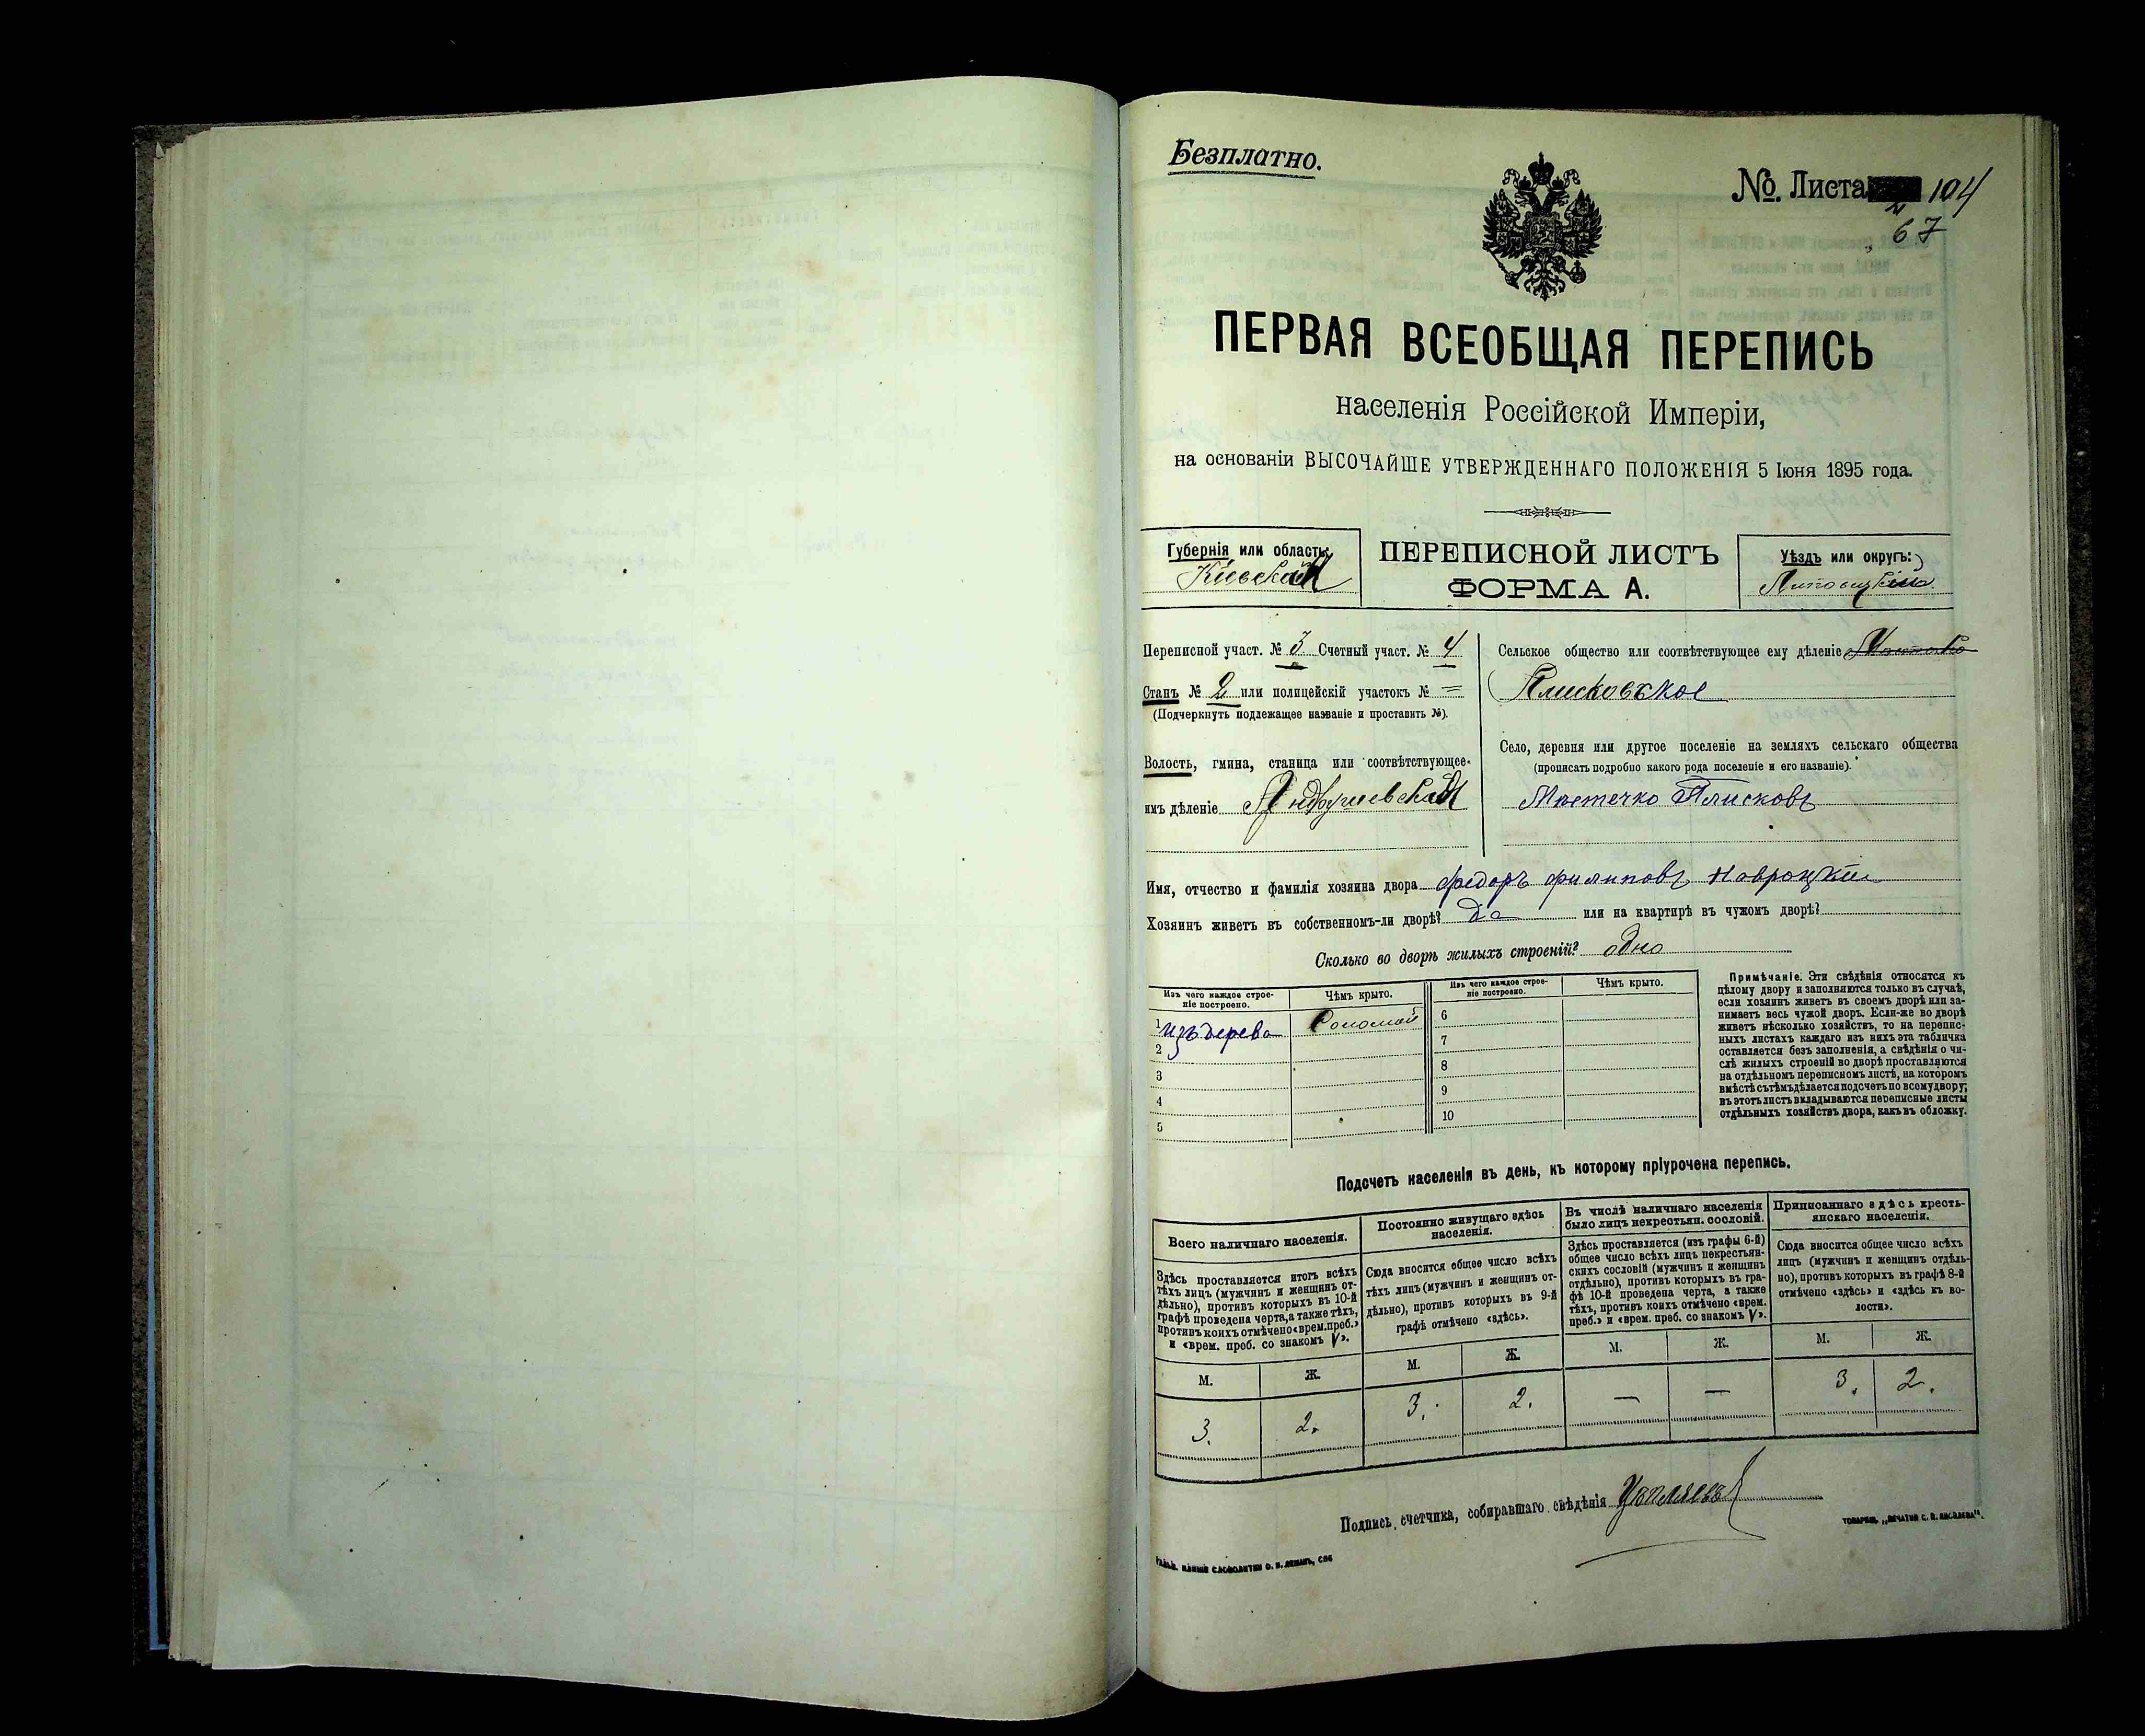 Безплатно.
№. Листа 104
67
ПЕРВАЯ ВСЕОБЩАЯ ПЕРЕПИСЬ
населенія Россійской Имперіи,
на основаніи ВЫСОЧАЙШЕ УТВЕРЖДЕННАГО ПОЛОЖЕНІЯ 5 Іюня 1895 года.
Губернія или область:
Кіевская
ПЕРЕПИСНОЙ ЛИСТЪ
ФОРМА А.
Уѣздъ или округъ:
Липовецкій
Переписной участ. № 3 Счетный участ. № 4
Станъ № 2 или полицейскій участокъ № =
(Подчеркнуть подлежащее названіе и проставить №).
Волость, гмина, станица или соотвѣтствующее
имъ дѣленіе Андрушевская
Сельское общество или соотвѣтствующее ему дѣленіе
Плисковское
Село, деревня или другое поселеніе на земляхъ сельскаго общества
(прописать подробно какого рода поселеніе и его названіе).
Мѣстечко Плисковъ
Имя, отчество и фамилія хозяина двора Федоръ Филиповъ Навроцкій
Хозяинъ живетъ въ собственномъ-ли дворѣ? Да или на квартирѣ въ чужомъ дворѣ?
Сколько во дворѣ жилыхъ строеній? одно
Изъ чего каждое строе-
ніе построено.
Чѣмъ крыто.
Изъ чего каждое строе-
ніе построено.
Чѣмъ крыто.
1 Изъ дерева Соломой 6
2 7
3 8
4 9
5 10
Примѣчаніе. Эти свѣдѣнія относятся къ
цѣлому двору и заполняются только въ случаѣ,
если хозяинъ живетъ въ своемъ дворѣ или за-
нимаетъ весь чужой дворъ. Если-же во дворѣ
живетъ нѣсколько хозяйствъ, то на перепис-
ныхъ листахъ каждаго изъ нихъ эта табличка
оставляется безъ заполненія, а свѣдѣнія о чи-
слѣ жилыхъ строеній во дворѣ проставляются
на отдѣльномъ переписномъ листѣ, на которомъ
вмѣстѣ съ тѣмъ дѣлается подсчетъ по всему двору;
въ этотъ листъ вкладываются переписные листы
отдѣльныхъ хозяйствъ двора, какъ въ обложку.
Подсчетъ населенія въ день, къ которому пріурочена перепись.
Всего наличнаго населенія.
Здѣсь проставляется итогъ всѣхъ
тѣхъ лицъ (мужчинъ и женщинъ от-
дѣльно), противъ которыхъ въ 10-й
графѣ проведена черта, а также тѣхъ,
противъ коихъ отмѣчено «врем. преб.»
и «врем. преб. со знакомъ V».
Постоянно живущаго здѣсь
населенія.
Сюда вносится общее число всѣхъ
тѣхъ лицъ (мужчинъ и женщинъ от-
дѣльно), противъ которыхъ въ 9-й
графѣ отмѣчено «здѣсь».
Въ числѣ наличнаго населенія
было лицъ некрестьян. сословій.
Здѣсь проставляется (изъ графы 6-й)
общее число всѣхъ лицъ некрестьян-
скихъ сословій (мужчинъ и женщинъ
отдѣльно), противъ которыхъ въ гра-
фѣ 10-й проведена черта, а также
тѣхъ, противъ коихъ отмѣчено «врем.
преб.» и «врем. преб. со знакомъ V».
Приписаннаго здѣсь кресть-
янскаго населенія.
Сюда вносится общее число всѣхъ
лицъ (мужчинъ и женщинъ отдѣль-
но), противъ которыхъ въ графѣ 8-й
отмѣчено «здѣсь» и «здѣсь къ во-
лости».
М. Ж. М. Ж. М. Ж. М. Ж.
3. 2. 3. 2. — — 3. 2.
Подпись счетчика, собиравшаго свѣдѣнія